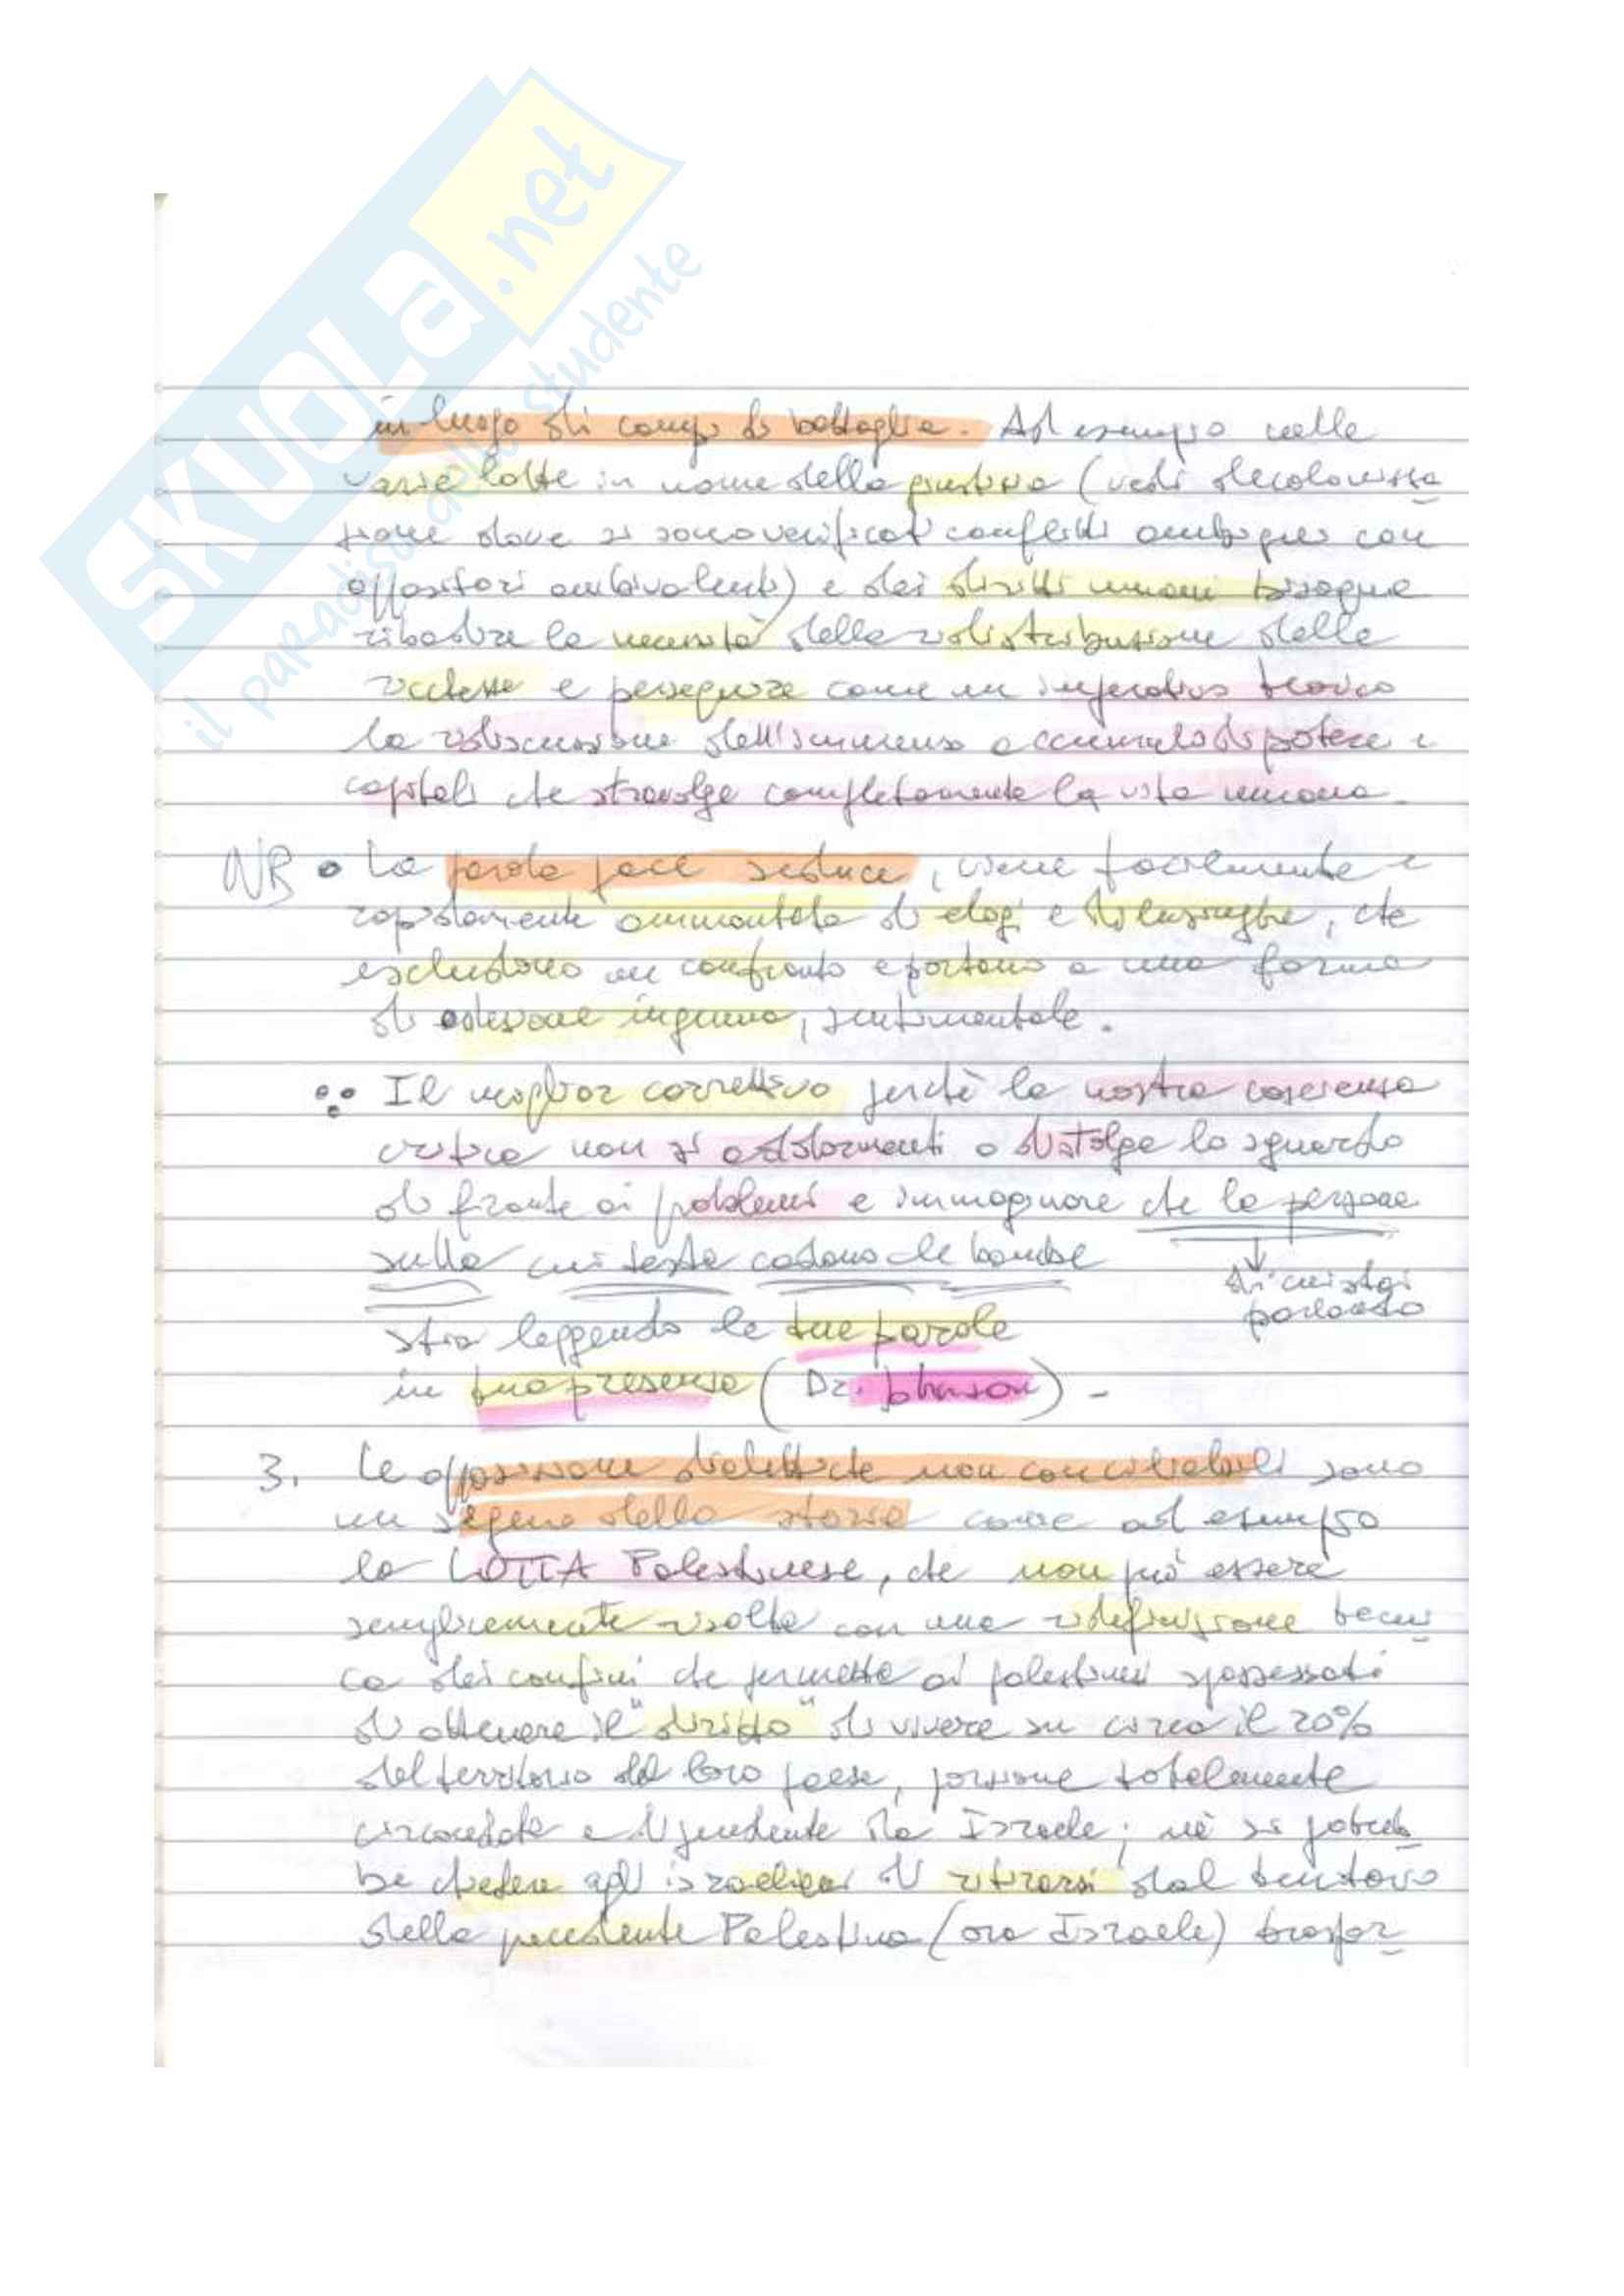 SKUOLA.net
il paradiso dello studente
in luogo di campi di battaglia. Ad esempio nelle
varie lotte in nome della giustizia (vedi decolonizza
zione dove si sono verificati conflitti ambigui con
oppositori ambivalenti) e dei diritti umani bisogna
ribadire la necessità della ridistribuzione delle
ricchezze e perseguire come un imperativo teorico
la ridiscussione dell'immenso accumulo di potere e
capitali che stravolge completamente la vita umana.
NB • La parola pace seduce, viene facilmente e
rapidamente ammantata di elogi e di lusinghe, che
escludono un confronto e portano a una forma
di adesione ingenua, sentimentale.
Il miglior correttivo perché la nostra coscienza
critica non si addormenti o distolga lo sguardo
di fronte ai problemi è immaginare che la persona
sulla cui testa cadono le bombe
di cui stai
parlando
stia leggendo le tue parole
in tua presenza (Dr. Johnson) -
3. Le opposizioni dialettiche non conciliabili sono
un segno della storia come ad esempio
la LOTTA Palestinese, che non può essere
semplicemente risolta con una ridefinizione tecni
ca dei confini che permetta ai palestinesi spossessati
di ottenere il "diritto" di vivere su circa il 20%
del territorio del loro paese, porzione totalmente
circondata e dipendente da Israele; né si potreb
be chiedere agli israeliani di ritirarsi dal territorio
della precedente Palestina (ora Israele) trasfor